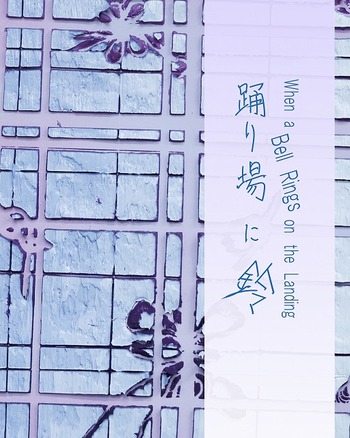 When a Bell Rings on the Landing
踊り場に鈴